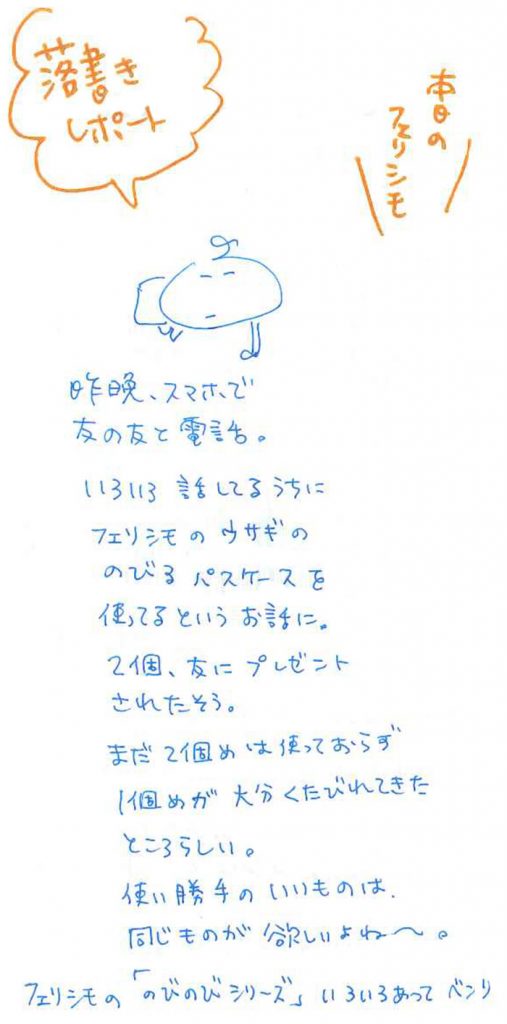 落書き
レポート
本日の
フェリシモ
昨晩、スマホで
友の友と電話。
いろいろ 話してるうちに
フェリシモの ウサギの
のびる パスケースを
使ってるという お話に。
2個、友に プレゼント
されたそう。
まだ 2個めは 使っておらず
1個めが 大分 くたびれてきた
ところらしい。
使い勝手の いいものは、
同じものが 欲しいよね〜。
フェリシモの 「のびのびシリーズ」 いろいろあって ベンリ